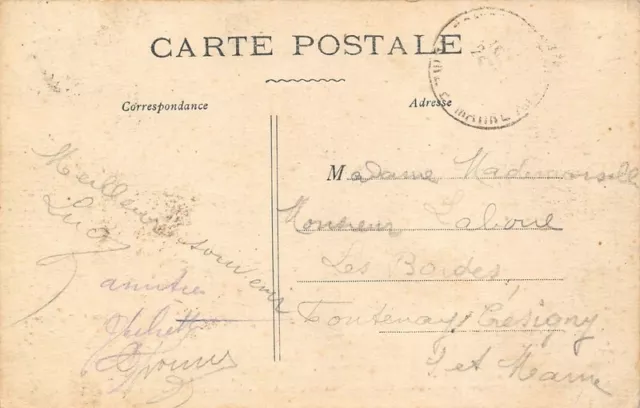 CARTE POSTALE
Correspondance
Adresse
Meilleur souvenir
amitiés
Juliette
Madame Mademoiselle
Monsieur Laloue
Les Bordes
Fontenay Trésigny
S et Marne